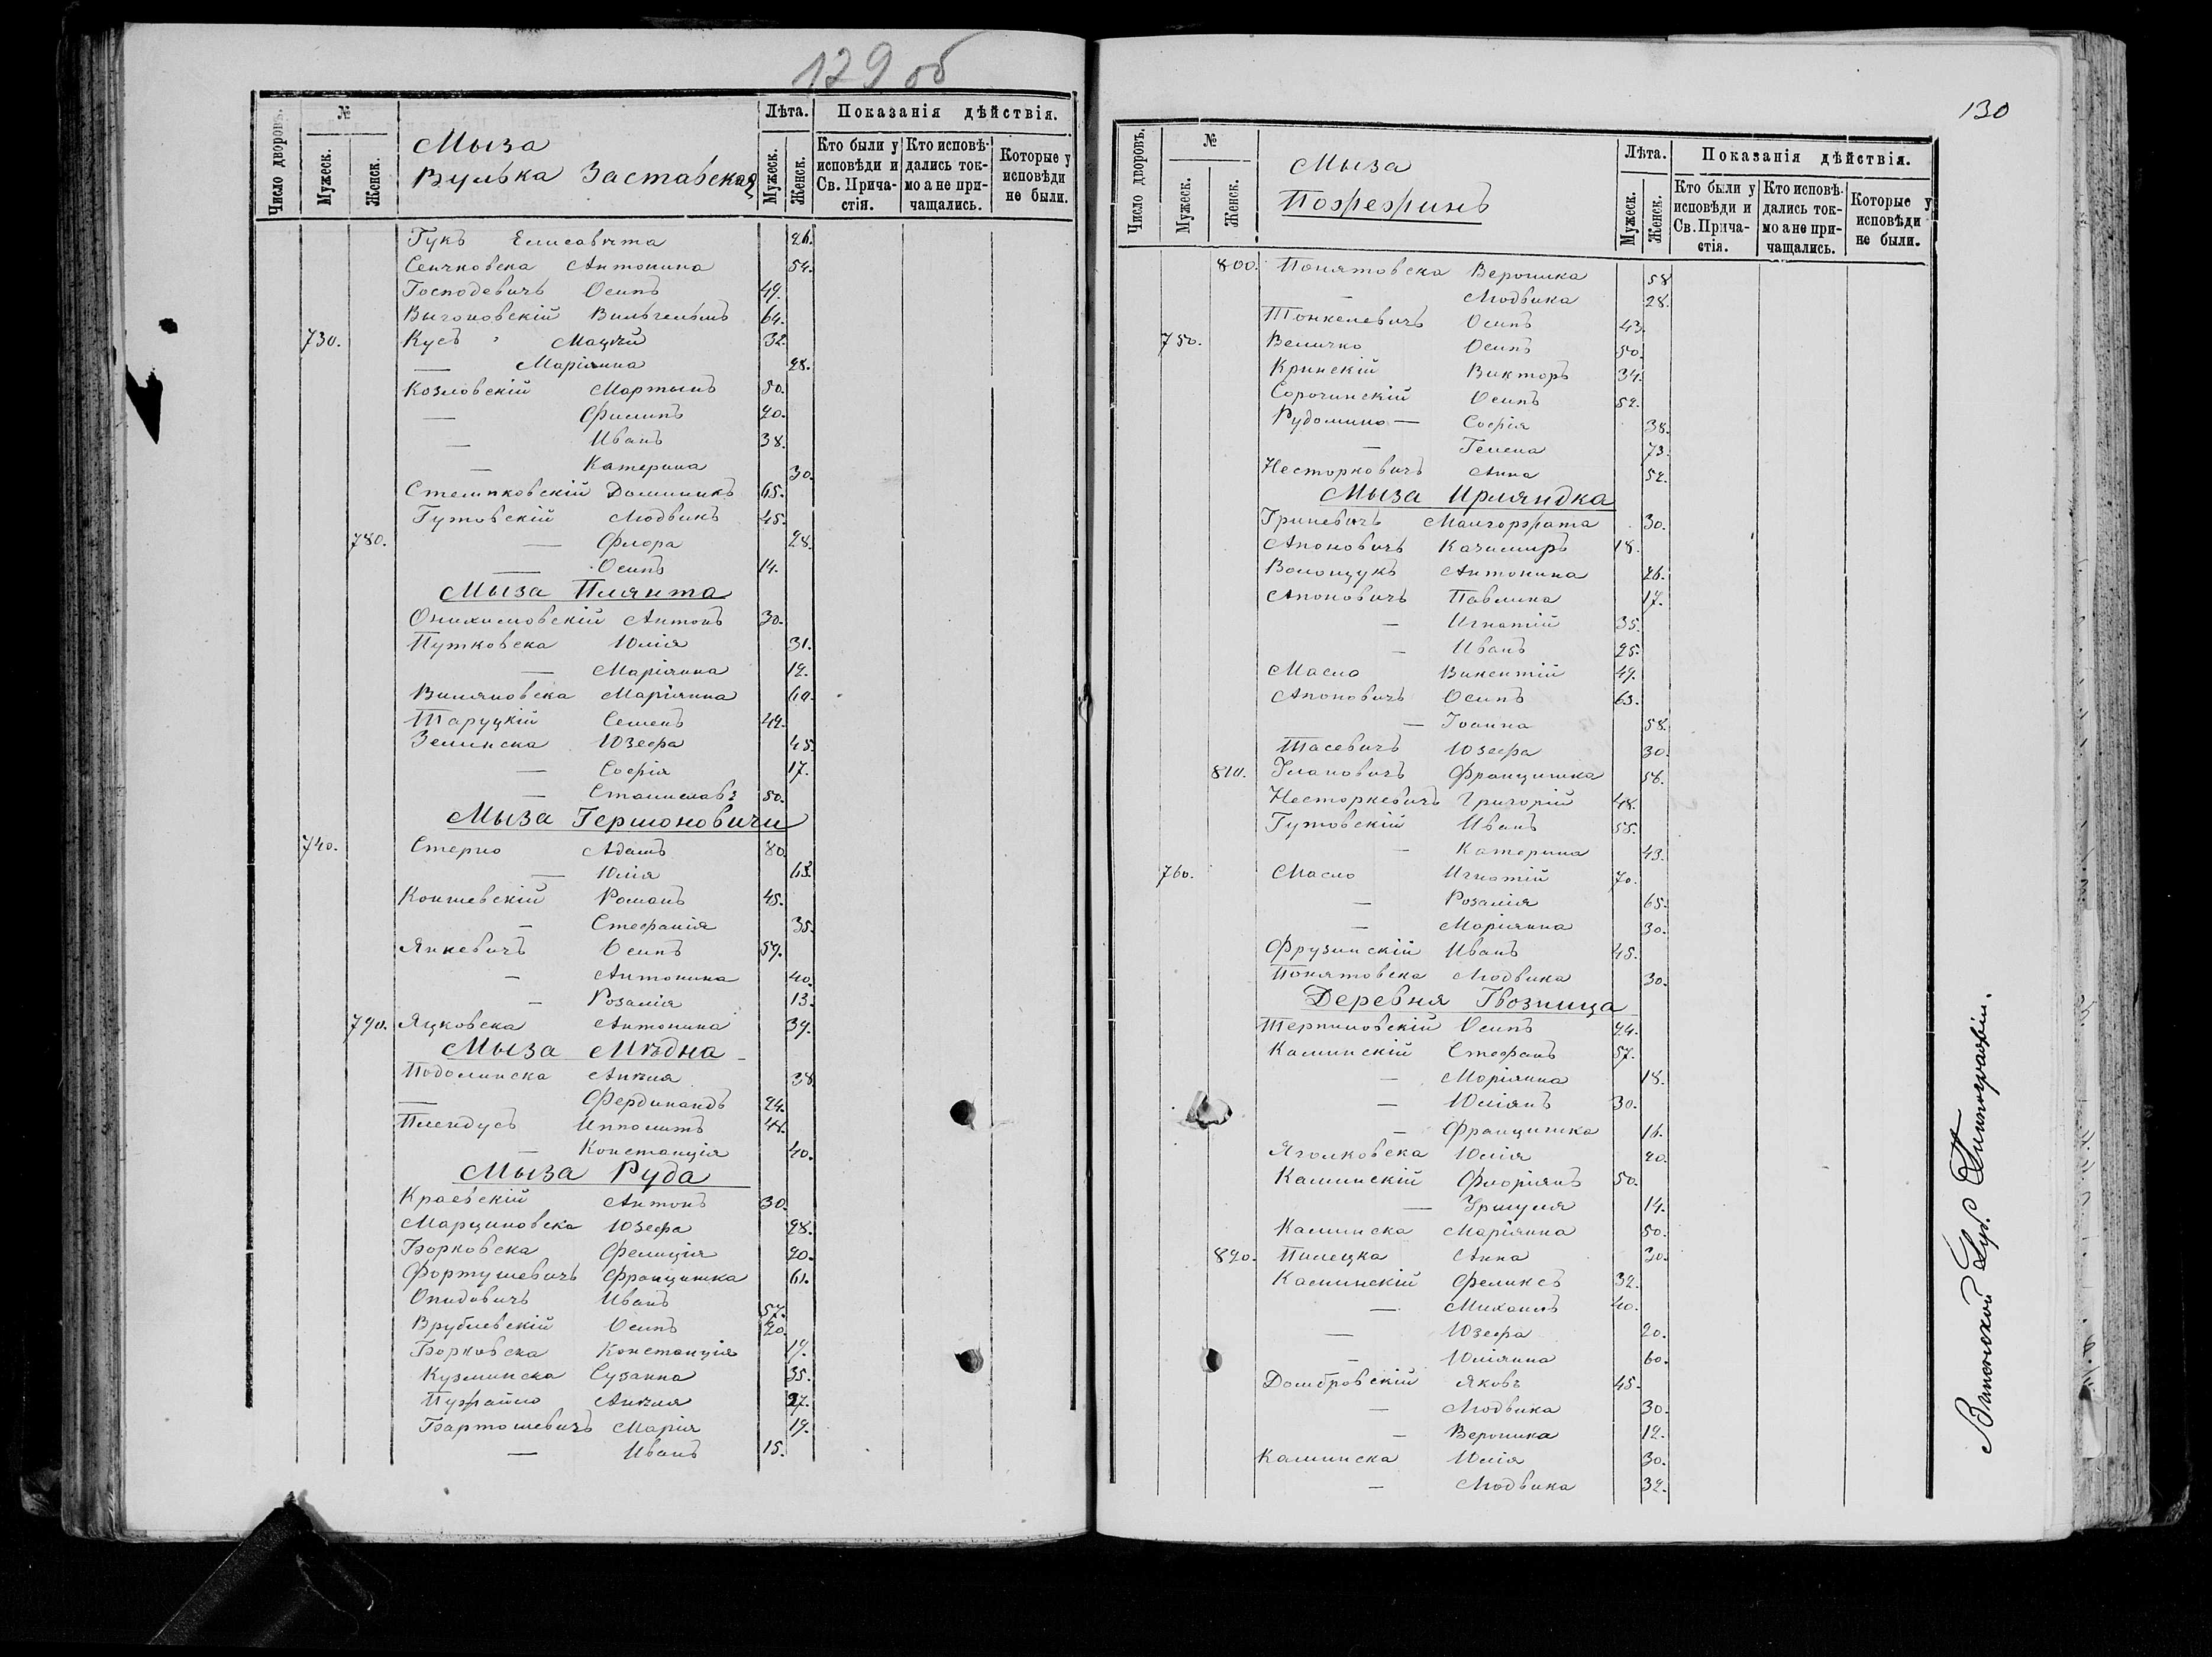 129 об
Число дворовъ. № Мужеск. Женск. Мыза Вулька Заставская Лѣта. Мужеск. Женск. Показанія дѣйствія.
Кто были у исповѣди и Св. Прича-стія. Кто исповѣ-дались ток-мо а не при-чащались. Которые у исповѣди не были.
Гукъ Елисавѣта 26.
Сенчковска Антонина 54.
Господевичъ Осипъ 49.
Выгоновскій Вильгельмъ 64.
730. Кусъ Мацѣй 32.
— Маріянна 28.
Козловскій Мартынъ 50.
— Филипъ 20.
— Иванъ 38.
— Катерина 30.
Стемпковскій Доминикъ 65.
Гутовскій Людвикъ 45.
780. — Флора 28.
— Осипъ 14.
Мыза Плянта
Онихимовскій Антонъ 30.
Путковска Юлія 31.
— Маріянна 12.
Виляновска Маріянна 60.
Таруцкій Семенъ 42.
Зелинска Юзефа 45.
— Софія 17.
— Станиславъ 50.
Мыза Гермоновичи
740. Стерно Адамъ 80.
— Юлія 63.
Контевскій Романъ 45.
— Стефанія 35.
Янкевичъ Осипъ 59.
— Антонина 40.
— Розалія 13.
790. Яцковска Антонина 39.
Мыза Мѣдна
Подолинска Анѣля 38
— Фердинандъ 24.
Плендусъ Ипполитъ 44.
— Констанція 40.
Мыза Руда
Краевскій Антонъ 30.
Марциновска Юзефа 28.
Борковска Фелиція 20.
Фортушевичъ Францишка 61.
Опидовичъ Иванъ 57.
Врублевскій Осипъ 20.
Борковска Констанція 19.
Кузминска Сузанна 35.
Пужайло Анѣля 27.
Бартошевичъ Марія 19.
— Иванъ 15.
130
Число дворовъ. № Мужеск. Женск. Мыза Пожежинъ Лѣта. Мужеск. Женск. Показанія дѣйствія.
Кто были у исповѣди и Св. Прича-стія. Кто исповѣ-дались ток-мо а не при-чащались. Которые у исповѣди не были.
800. Понятовска Вероника 58
— Людвика 28.
Тонкелевичъ Осипъ 43.
750. Величко Осипъ 50.
Кринскій Викторъ 34.
Сорочинскій Осипъ 52.
Рудомино — Софія 38.
— Гелена 73.
Несторковичъ Анна 52.
Мыза Ирляндка
Гриневичъ Малгоржата 30.
Апоновичъ Казимиръ 18.
Волощукъ Антонина 26.
Апоновичъ Павлина 17.
— Игнатій 35.
— Иванъ 25.
Масло Викентій 49.
Апоновичъ Осипъ 63.
— Іоанна 58.
Тасевичъ Юзефа 30.
810. Улановичъ Францишка 58.
Несторкевичъ Григорій 48.
Гутовскій Иванъ 55.
— Катерина 43.
760. Масло Игнатій 70.
— Розалія 65.
— Маріянна 30.
Фрузинскій Иванъ 45.
Понятовска Людвика 30.
Деревня Гвозница
Терпиловскій Осипъ 24.
Калинскій Стефанъ 57.
— Маріянна 18.
— Юліянъ 30.
— Францишка 16.
Яголковска Юлія 20.
Калинскій Флоріянъ 50.
— Уршуля 14.
Калинска Маріянна 50.
820. Пилецка Анна 30.
Калинскій Феликсъ 32.
— Михаилъ 40.
— Юзефа 20.
— Юліянна 60.
Домбровскій Яковъ 45.
— Людвика 30.
— Вероника 12.
Калинска Юлія 30.
— Людвика 32.
Виленской Губ. Типографіи.